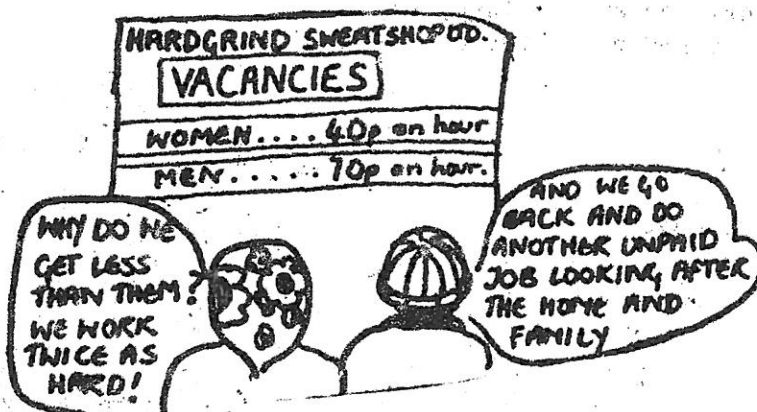 HARDGRIND SWEATSHOP LTD.
VACANCIES
WOMEN.... 40p an hour
MEN..... 70p an hour.
WHY DO WE
GET LESS
THAN THEM?
WE WORK
TWICE AS
HARD!
AND WE GO
BACK AND DO
ANOTHER UNPAID
JOB LOOKING AFTER
THE HOME AND
FAMILY